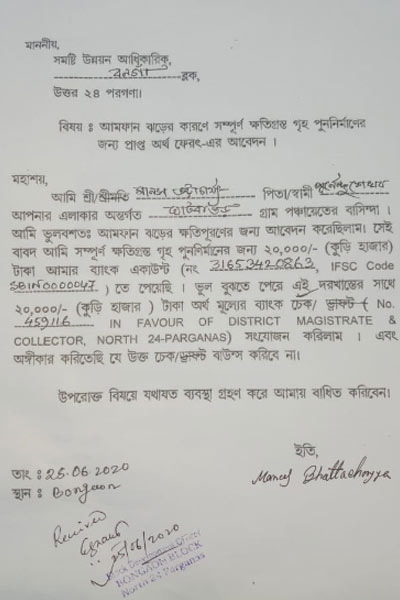 মাননীয়,
সমষ্টি উন্নয়ন আধিকারিক,
বনগাঁ ব্লক,
উত্তর ২৪ পরগণা।
বিষয় ঃ আমফান ঝড়ের কারণে সম্পূর্ণ ক্ষতিগ্রস্ত গৃহ পুননির্মাণের
জন্য প্রাপ্ত অর্থ ফেরৎ-এর আবেদন ।
মহাশয়,
আমি শ্রী/শ্রীমতি মানস ভট্টাচার্য্য পিতা/স্বামী
আপনার এলাকার অন্তর্গত গ্রাম পঞ্চায়েতের বাসিন্দা ।
আমি ভুলবশতঃ আমফান ঝড়ের ক্ষতিপূরণের জন্য আবেদন করেছিলাম। সেই
বাবদ আমি সম্পূর্ণ ক্ষতিগ্রস্ত গৃহ পুননির্মানের জন্য ২০,০০০/- (কুড়ি হাজার)
টাকা আমার ব্যাংক একাউন্ট (নং 31653420863, IFSC Code
SBIN0000047 ) তে পেয়েছি । ভুল বুঝতে পেরে এই দরখাস্তের সাথে
২০,০০০/- (কুড়ি হাজার ) টাকা অর্থ মূল্যের ব্যাংক চেক/ ড্রাফ্ট ( No.
459116 IN FAVOUR OF DISTRICT MAGISTRATE &
COLLECTOR, NORTH 24-PARGANAS) সংযোজন করিলাম । এবং
অঙ্গীকার করিতেছি যে উক্ত চেক/ড্রাফ্ট বাউন্স করিবে না।
উপরোক্ত বিষয়ে যথাযত ব্যবস্থা গ্রহণ করে আমায় বাধিত করিবেন।
ইতি,
তাং : 25.06.2020
Bhattacharyya
স্থান : Bongaon
Received
25/06/2020
Block Development Officer
BONGAON BLOCK
North 24 Parganas